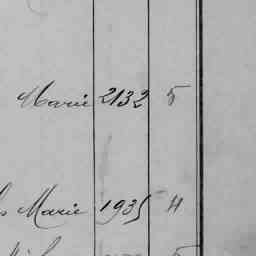 Marie 2132 5
Marie 1935 4